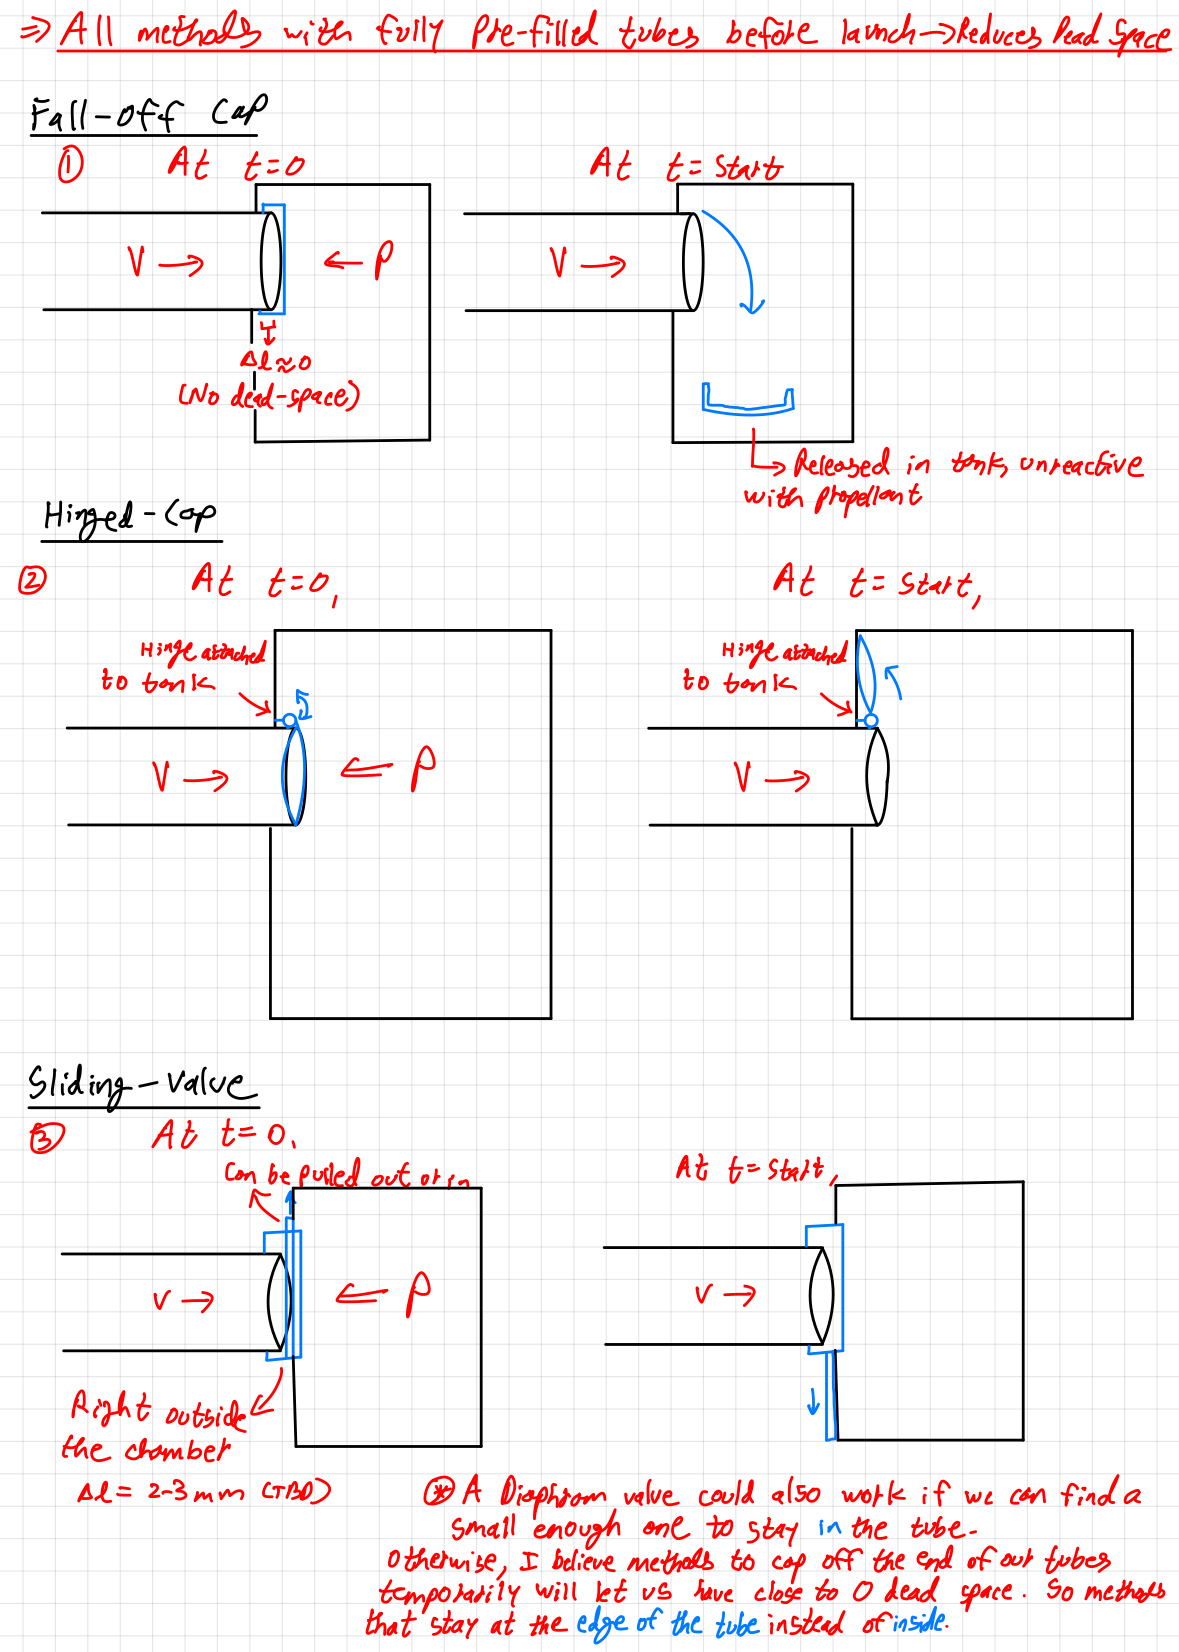 ⇒ All methods with fully Pre-filled tubes before launch → Reduces Dead Space
Fall-off Cap
① At t=0
At t= Start
V → ← P
V →
Δl≈0
(No dead-space)
Released in tank, unreactive
with propellant
Hinged-Cap
② At t=0,
At t= Start,
Hinge attached
to tank
Hinge attached
to tank
V → ← P
V →
Sliding-Valve
③ At t=0,
Can be pulled out or in
At t= Start,
V → ← P
V →
Right outside
the chamber
Δl = 2-3 mm (TBD)
⊛ A Diaphram valve could also work if we can find a
small enough one to stay in the tube.
Otherwise, I believe methods to cap off the end of our tubes
temporarily will let us have close to 0 dead space. So methods
that stay at the edge of the tube instead of inside.